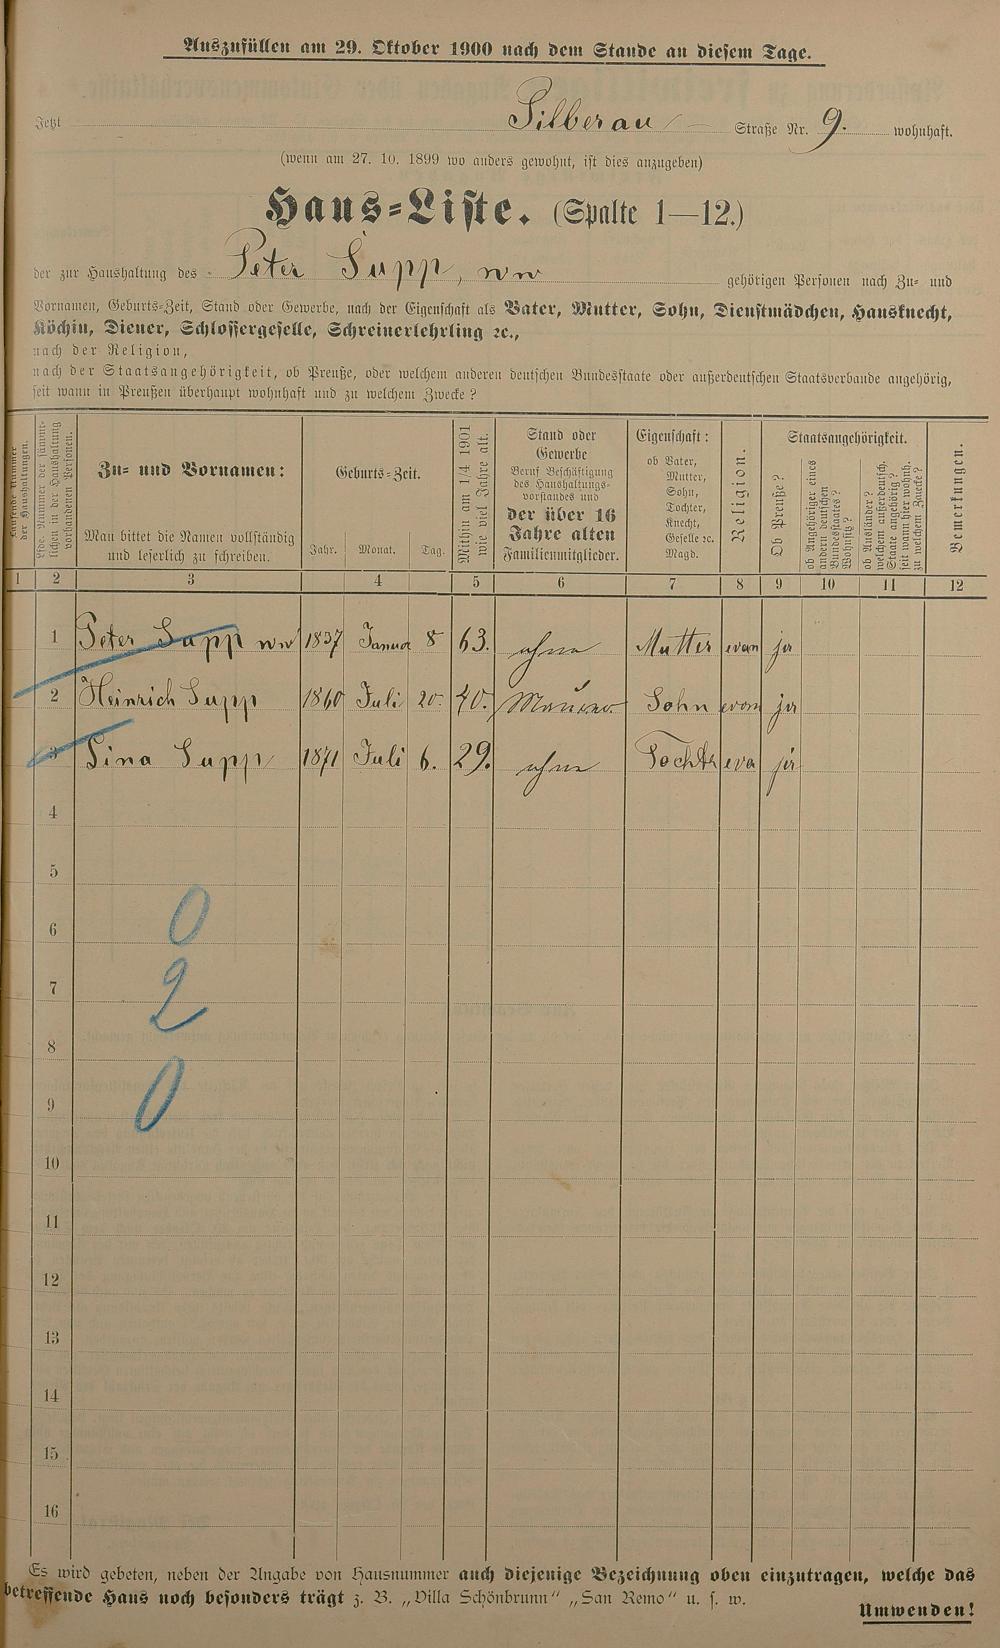 Auszufüllen am 29. Oktober 1900 nach dem Stande an diesem Tage.
Jetzt Silberau Straße Nr. 9. wohnhaft.
(wenn am 27. 10. 1899 wo anders gewohnt, ist dies anzugeben)
Haus-Liste. (Spalte 1—12.)
der zur Haushaltung des Peter Supp, ww gehörigen Personen nach Zu- und
Vornamen, Geburts-Zeit, Stand oder Gewerbe, nach der Eigenschaft als Vater, Mutter, Sohn, Dienstmädchen, Hausknecht,
Köchin, Diener, Schlossergeselle, Schreinerlehrling ꝛc.,
nach der Religion,
nach der Staatsangehörigkeit, ob Preuße, oder welchem anderen deutschen Bundesstaate oder außerdeutschen Staatsverbande angehörig,
seit wann in Preußen überhaupt wohnhaft und zu welchem Zwecke?
Laufende Nummer der Haushaltungen.
Lfde. Nummer der sämmtlichen in der Haushaltung vorhandenen Personen.
Zu- und Vornamen:
Man bittet die Namen vollständig
und leserlich zu schreiben.
Geburts-Zeit.
Jahr. Monat. Tag.
Mithin am 1/4 1901
wie viel Jahre alt.
Stand oder
Gewerbe
Beruf Beschäftigung
des Haushaltungs-
vorstandes und
der über 16
Jahre alten
Familienmitglieder.
Eigenschaft:
ob Vater,
Mutter,
Sohn,
Tochter,
Knecht,
Geselle ꝛc.
Magd.
Religion.
Staatsangehörigkeit.
Ob Preuße?
ob Angehöriger eines
andern deutschen
Bundesstaates?
Wohnsitz?
ob Ausländer?
welchem außerdeutsch.
Staate angehörig?
seit wann hier wohnh.
zu welchem Zwecke?
Bemerkungen.
1 2 3 4 5 6 7 8 9 10 11 12
1 Peter Supp ww 1837 Januar 8 63. ohne Mutter evan ja
2 Heinrich Supp 1860 Juli 20. 40. Maurer Sohn evan ja
3 Lina Supp 1871 Juli 6. 29. ohne Tochter eva ja
4
5
6
0
7
2
8
9
0
10
11
12
13
14
15
16
Es wird gebeten, neben der Angabe von Hausnummer auch diejenige Bezeichnung oben einzutragen, welche das
betreffende Haus noch besonders trägt z. B. „Villa Schönbrunn“ „San Remo“ u. s. w.
Umwenden!